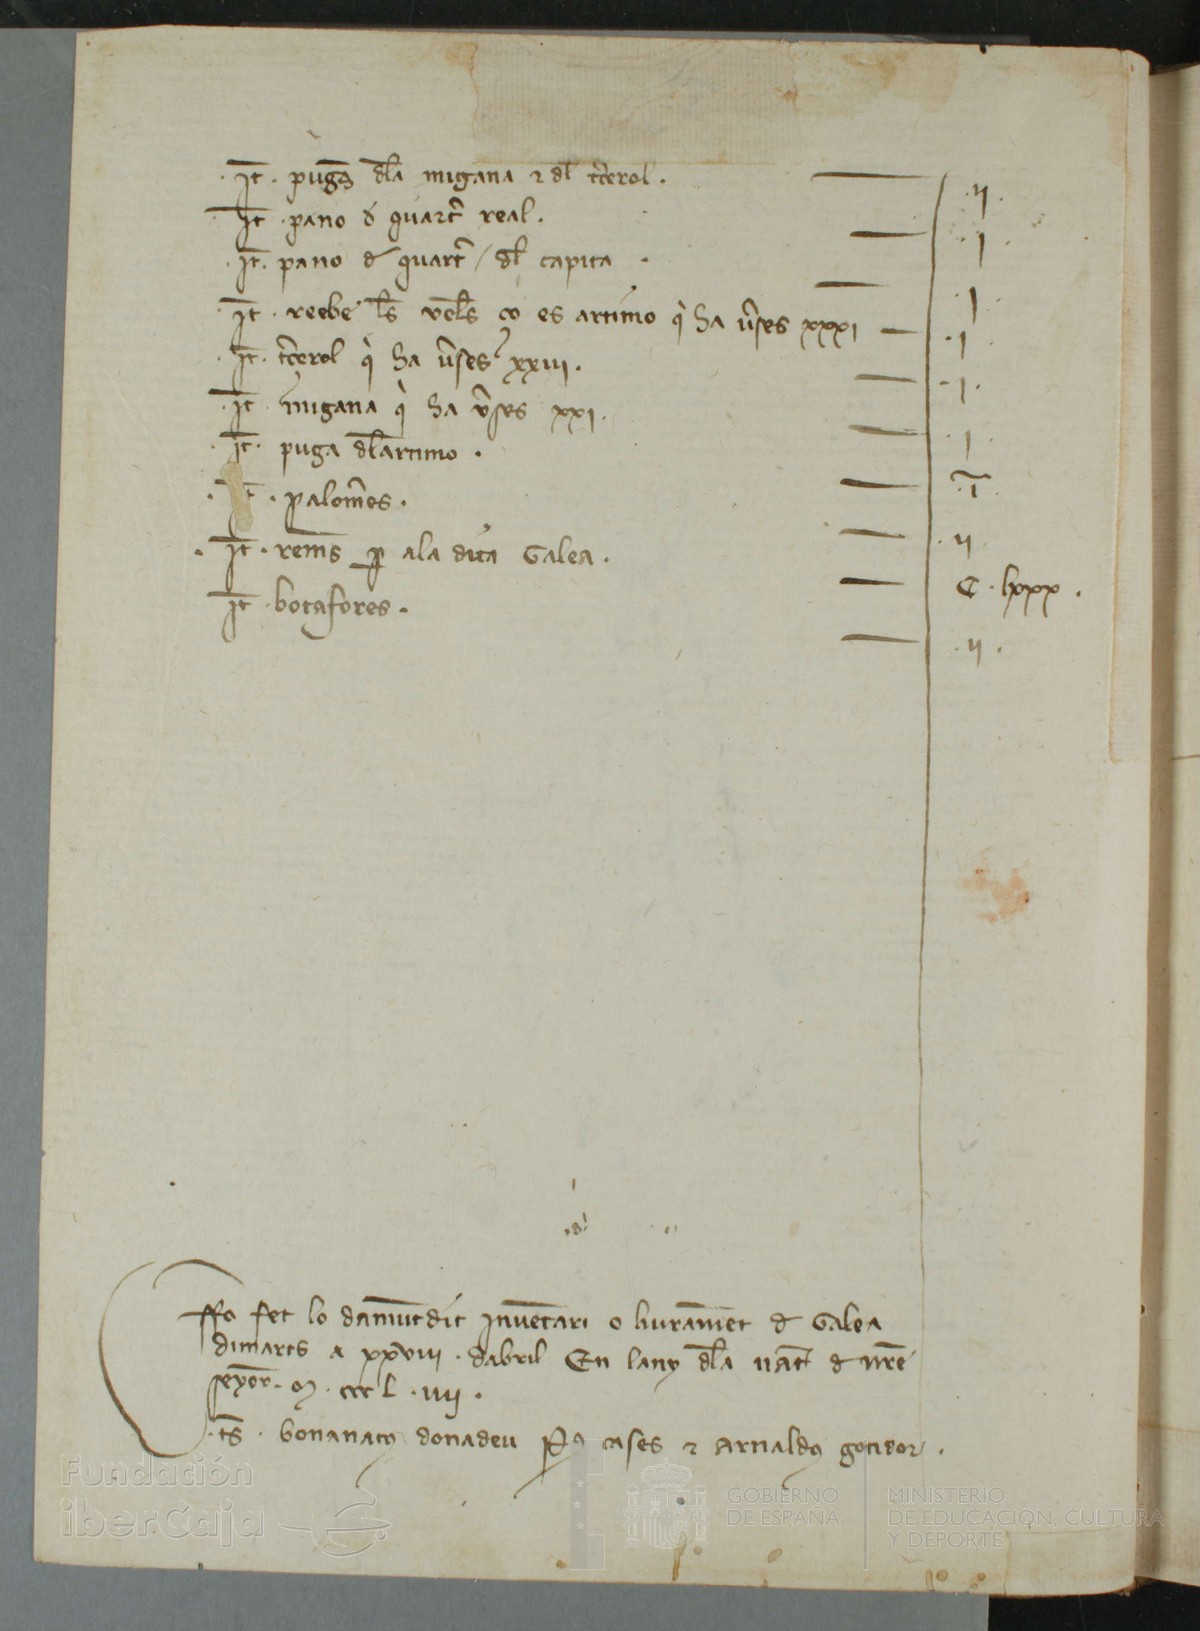 ·It· pugs dla migana ⁊ dl tcerol· ·ij·
It ·pano d quart real· ·i·
·It· pano d quart / dl capita · ·i·
·It· reebe ls vels co es artimo q ha vses xxxi ·i·
·It· tcerol q ha vses xxiii· ·i·
·It· migana q ha vses xxi· ·i·
·It· puga dlartimo · ·i·
·It· palomes· ·ij·
·It· rems p ala dita Galea· C·lxxx·
It ·botafores· ·ij·
Ffo fet lo damutdit Inuetari o liurament d Galea
dimarts a xxviii · dabril En lany dla nat d nre
seyor· M· ccc l ·iiij·
·ts· bonanat donadeu P cases ⁊ Arnald gotidor·
Fundación
iberCaja
GOBIERNO
DE ESPAÑA
MINISTERIO
DE EDUCACIÓN, CULTURA
Y DEPORTE